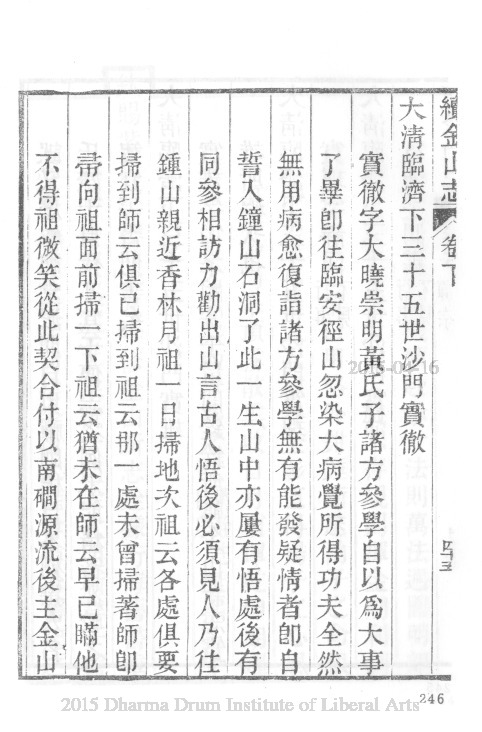 續金山志 卷下 四十五
大淸臨濟下三十五世沙門實徹
實徹字大曉崇明黃氏子諸方參學自以爲大事
了畢卽往臨安徑山忽染大病覺所得功夫全然
無用病愈復詣諸方參學無有能發疑情者卽自
誓入鐘山石洞了此一生山中亦屢有悟處後有
同參相訪力勸出山言古人悟後必須見人乃往
鍾山親近香林月祖一日掃地次祖云各處俱要
掃到師云俱已掃到祖云那一處未曾掃著師卽
帚向祖面前掃一下祖云猶未在師云早已瞞他
不得祖微笑從此契合付以南磵源流後主金山
2015-04-16
246
2015 Dharma Drum Institute of Liberal Arts